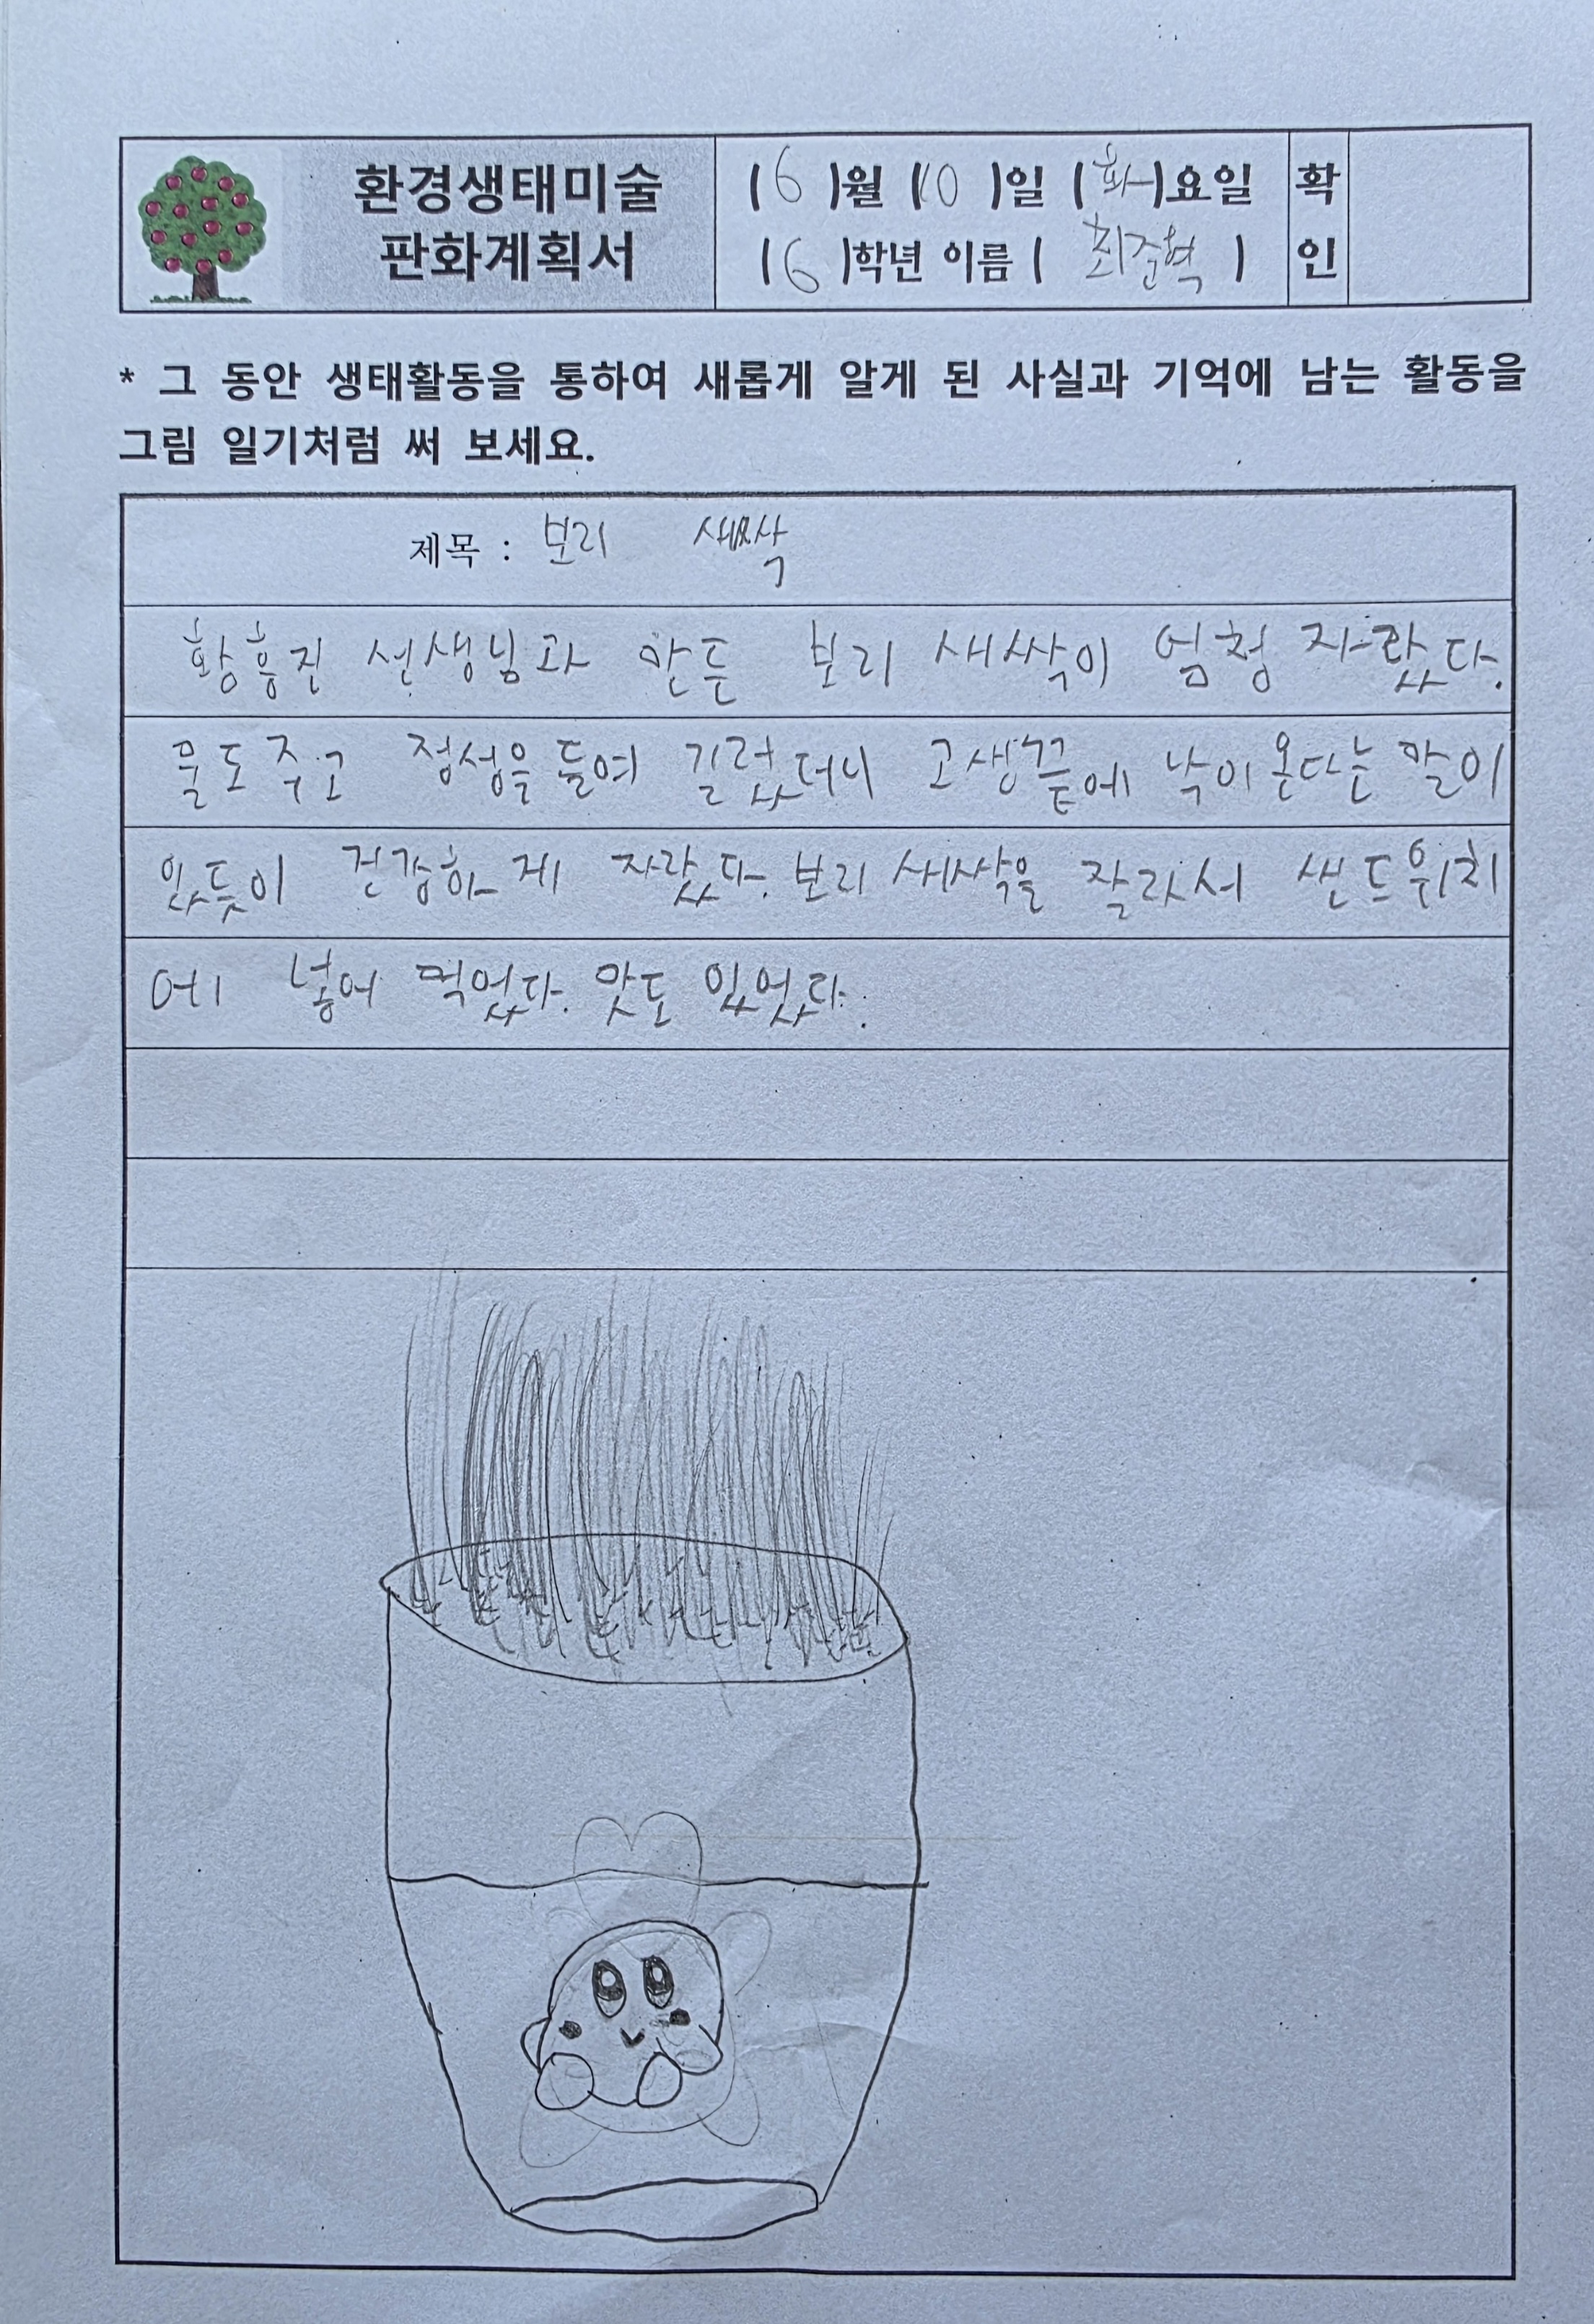 환경생태미술
판화계획서
(6)월 (10)일 (화)요일
(6)학년 이름 ( 최준혁 )
확인
* 그 동안 생태활동을 통하여 새롭게 알게 된 사실과 기억에 남는 활동을
그림 일기처럼 써 보세요.
제목 : 보리 새싹
황흥진 선생님과 만든 보리 새싹이 엄청 자랐다.
물도 주고 정성을 들여 길렀더니 고생끝에 낙이 온다는 말이
있듯이 건강하게 자랐다. 보리 새싹을 잘라서 샌드위치
에 넣어 먹었다. 맛도 있었다.